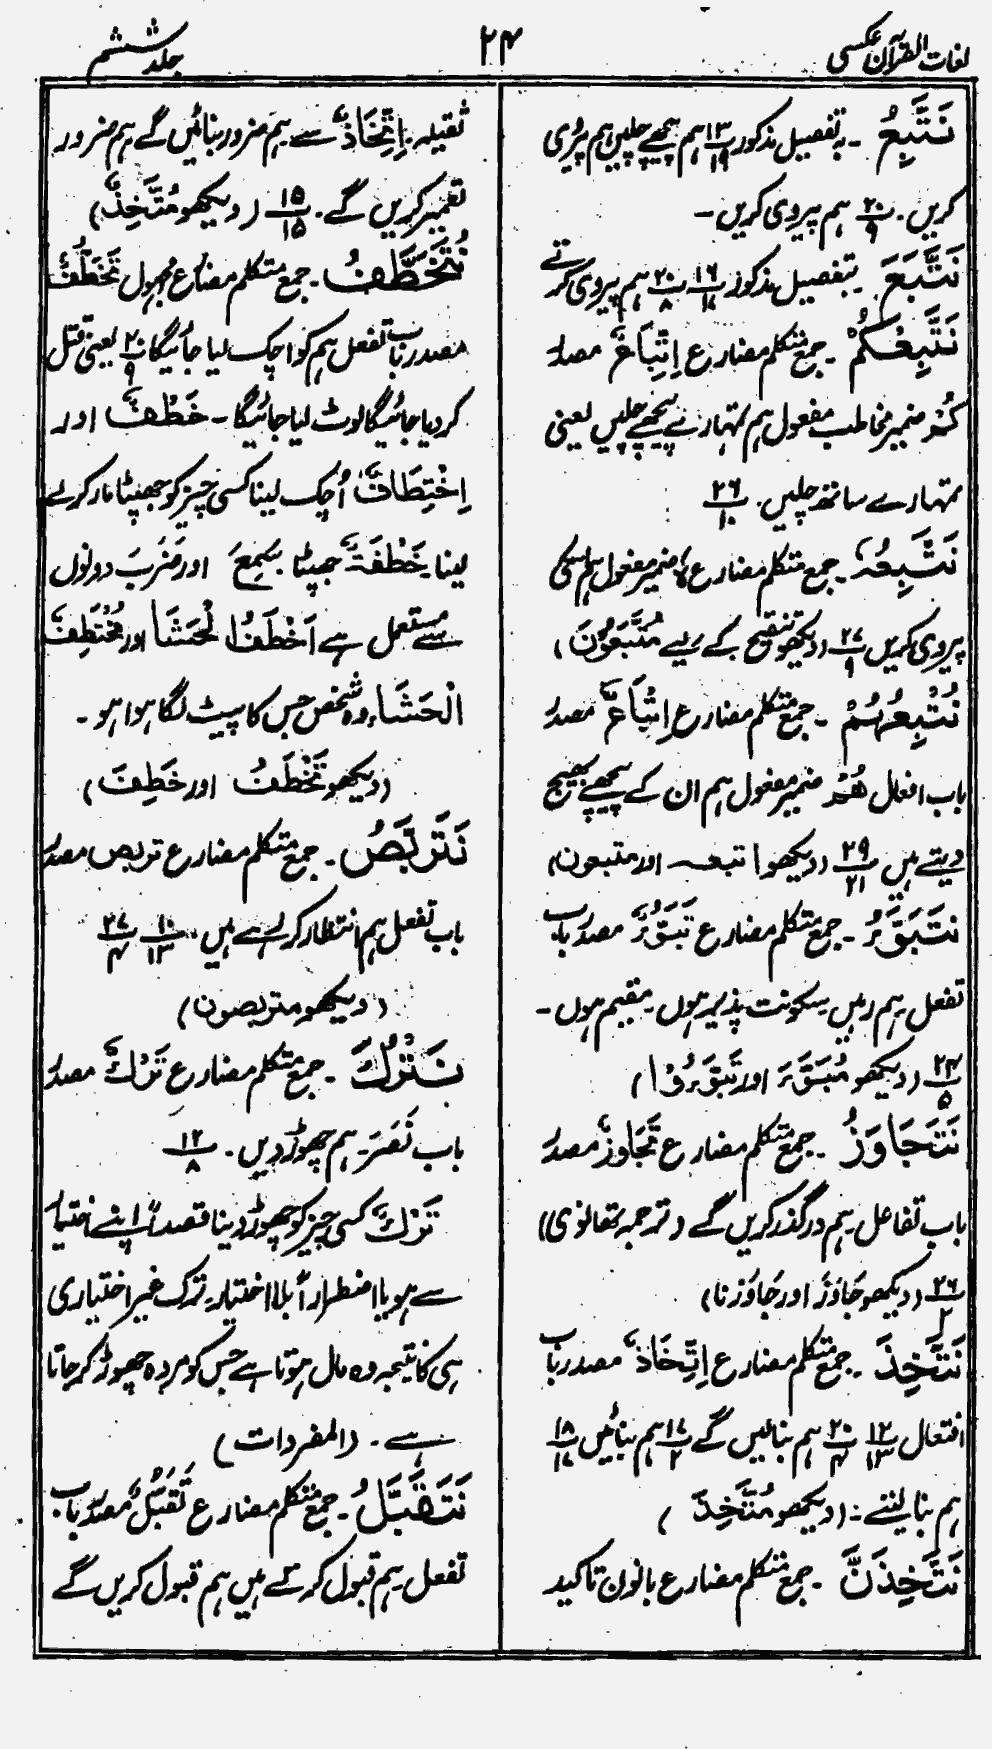 لغات القرآن عکسی
۲۴
جلد ششم
نَتَّبِعُ ۔ بہ تفصیل مذکور ۱۳/۱۹ ہم پیچھے چلیں ہم پیروی
کریں۔ ۲۰/۹ ہم پیروی کریں۔
نَتَّبِعَ ۔ بتفصیل مذکور ۱۶/۱۷ ۲۰/۸ ہم پیروی کرتے
نَتَّبِعُکُمْ ۔ جمع متکلم مضارع اِتِّبَاعٌ مصدر
کُمْ ضمیر مخاطب مفعول ہم تمہارے پیچھے چلیں یعنی
تمہارے ساتھ چلیں۔ ۲۶/۱۰
نَتَّبِعُہٗ ۔ جمع متکلم مضارع ہٗ ضمیر مفعول ہم اس کی
پیروی کریں ۲۷/۹ (دیکھو تنقیح کے لیے مُتَّبَعُوْنَ)
نُتْبِعُہُمْ ۔ جمع متکلم مضارع اِتْبَاعٌ مصدر
باب افعال ھُمْ ضمیر مفعول ہم ان کے پیچھے بھیج
دیتے ہیں ۲۹/۲۱ (دیکھو اتبعہ اور متبعون)
نَتَبَوَّءُ ۔ جمع متکلم مضارع تَبَوُّءٌ مصدر باب
تفعل ہم رہیں سکونت پذیر ہوں۔ مقیم ہوں۔
۲۴/۵ (دیکھو مُبَوَّءَ اور تَبَوَّءُوْا)
نَتَجَاوَزُ ۔ جمع متکلم مضارع تَجَاوُزٌ مصدر
باب تفاعل ہم درگذر کریں گے (ترجمہ تھانوی)
۲۶/۲ (دیکھو جَاوَزَ اور جَاوَزنا)
نَتَّخِذَ ۔ جمع متکلم مضارع اِتِّخَاذٌ مصدر باب
افتعال ۱۲/۱۳ ۲۰/۴ ہم بنالیں گے ۱۷/۲ ہم بنائیں ۱۸/۱۷
ہم بنا لیتے ۔ (دیکھو مُتَّخِذَ)
نَتَّخِذَنَّ ۔ جمع متکلم مضارع بانون تاکید
ثقیلہ۔ اِتِّخَاذٌ سے ہم ضرور بنائیں گے ہم ضرور
تعمیر کریں گے۔ ۱۵/۱۵ (دیکھو مُتَّخِذٌ)
نُتَخَطَّفُ ۔ جمع متکلم مضارع مجہول تَخَطُّفٌ
مصدر باب تفعل ہم کو اچک لیا جائیگا ۲۰/۹ یعنی قتل
کر دیا جائیگا لوٹ لیا جائیگا۔ خَطْفٌ اور
اِخْتِطَافٌ اُچک لینا کسی چیز کو جھپٹا مار کر لے
لینا۔ خَطْفَةٌ جھپٹا بَسَمِعَ اور ضَرَبَ دونوں
سے مستعمل ہے اَخْطَفُ الْحَشَا اور مُخْتَطِفُ
الْحَشَا۔ وہ شخص جس کا پیٹ لگا ہوا ہو۔
(دیکھو تَخْطَفُ اور خَطِفَ)
نَتَرَبَّصُ ۔ جمع متکلم مضارع تربص مصدر
باب تفعل ہم انتظار کر رہے ہیں، ۱۰/۱۳ ۲۷/۴
(دیکھو متربصون)
نَتْرُكَ ۔ جمع متکلم مضارع تَرْكٌ مصدر
باب نَصَرَ۔ ہم چھوڑ دیں۔ ۱۲/۸
تَرْكٌ کسی چیز کو چھوڑ دینا قصداً اپنے اختیار
سے ہو یا اضطراراً بلا اختیار۔ ترک غیر اختیاری
ہی کا نتیجہ وہ مال ہوتا ہے جس کو مردہ چھوڑ کر جاتا
ہے۔ (المفردات)
نَتَقَبَّلُ ۔ جمع متکلم مضارع تَقَبُّلٌ مصدر باب
تفعل ہم قبول کرتے ہیں ہم قبول کریں گے